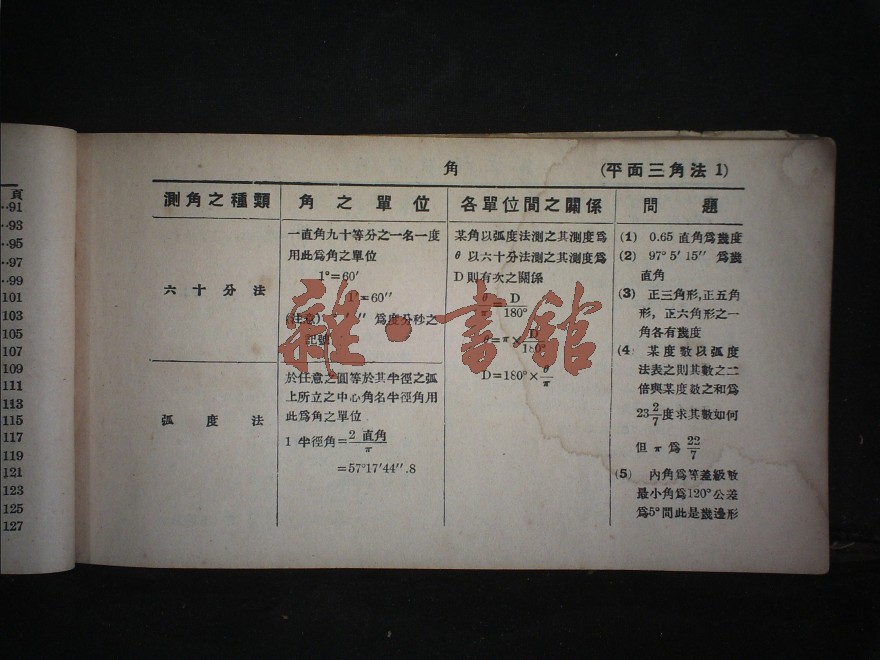 頁
..91
..93
..95
..97
..99
101
103
105
107
109
111
113
115
117
119
121
123
125
127
角
(平面三角法 1)
測角之種類
角之單位
各單位間之關係
問題
六十分法
一直角九十等分之一名一度
用此爲角之單位
1°=60′
1′=60″
(注意) ″ 爲度分秒之
記號
弧度法
於任意之圓等於其半徑之弧
上所立之中心角名半徑角用
此爲角之單位
1 半徑角=2 直角/π
=57°17′44″.8
某角以弧度法測之其測度爲
θ 以六十分法測之其測度爲
D 則有次之關係
θ/π=D/180°
θ=π×D/180°
D=180°×θ/π
(1) 0.65 直角爲幾度
(2) 97° 5′ 15″ 爲幾
直角
(3) 正三角形,正五角
形, 正六角形之一
角各有幾度
(4) 某度數以弧度
法表之則其數之二
倍與某度數之和爲
23 2/7 度求其數如何
但 π 爲 22/7
(5) 內角爲等差級數
最小角爲120°公差
爲5°問此是幾邊形
雜·書館